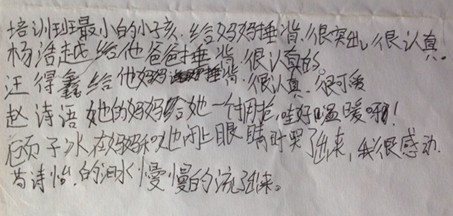 培训班最小的小孩.给妈妈捶背.很突出,很认真.
杨浩越给他爸爸捶背.很认真的.
汪得鑫给他妈妈捶背.很认真.很可爱
赵诗语她的妈妈给她一个拥抱,哇好温暖啊!
顾子冰在妈妈和他闭上眼睛时哭了出来,我很感动.
苟诗怡.的泪水慢慢的流了出来。